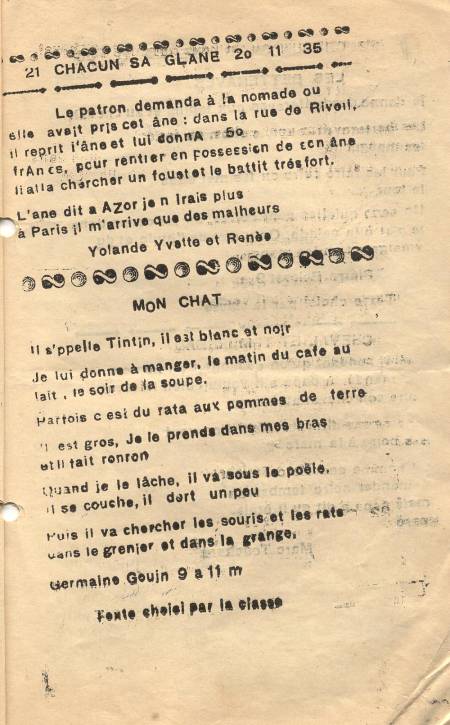 21 CHACUN SA GLANE 20 11 35
Le patron demanda à la nomade ou
elle avait pris cet âne : dans la rue de Rivoli,
il reprit l'âne et lui donnA 50
frAncs, pour rentrer en possession de son âne
il alla chercher un fouet et le battit très fort.
L'ane dit a AZor je n irais plus
à Paris il m'arrive que des malheurs
Yolande Yvette et Renèe
MON CHAT
Il s'ppelle Tintin, il est blanc et noir
Je lui donne à manger, le matin du cafe au
lait , le soir de la soupe.
Partois c est du rata aux pommes de terre
il est gros, Je le prends dans mes bras
et il fait ronron
Quand je le lâche, il va sous le poële,
il se couche, il dort un peu
Puis il va chercher les souris et les rats
dans le grenier et dans la grange,
Germaine Gouin 9 a 11 m
Texte choisi par la classe